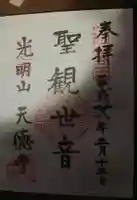 奉拝
年二月十三日
聖観世音
光明山 天徳寺